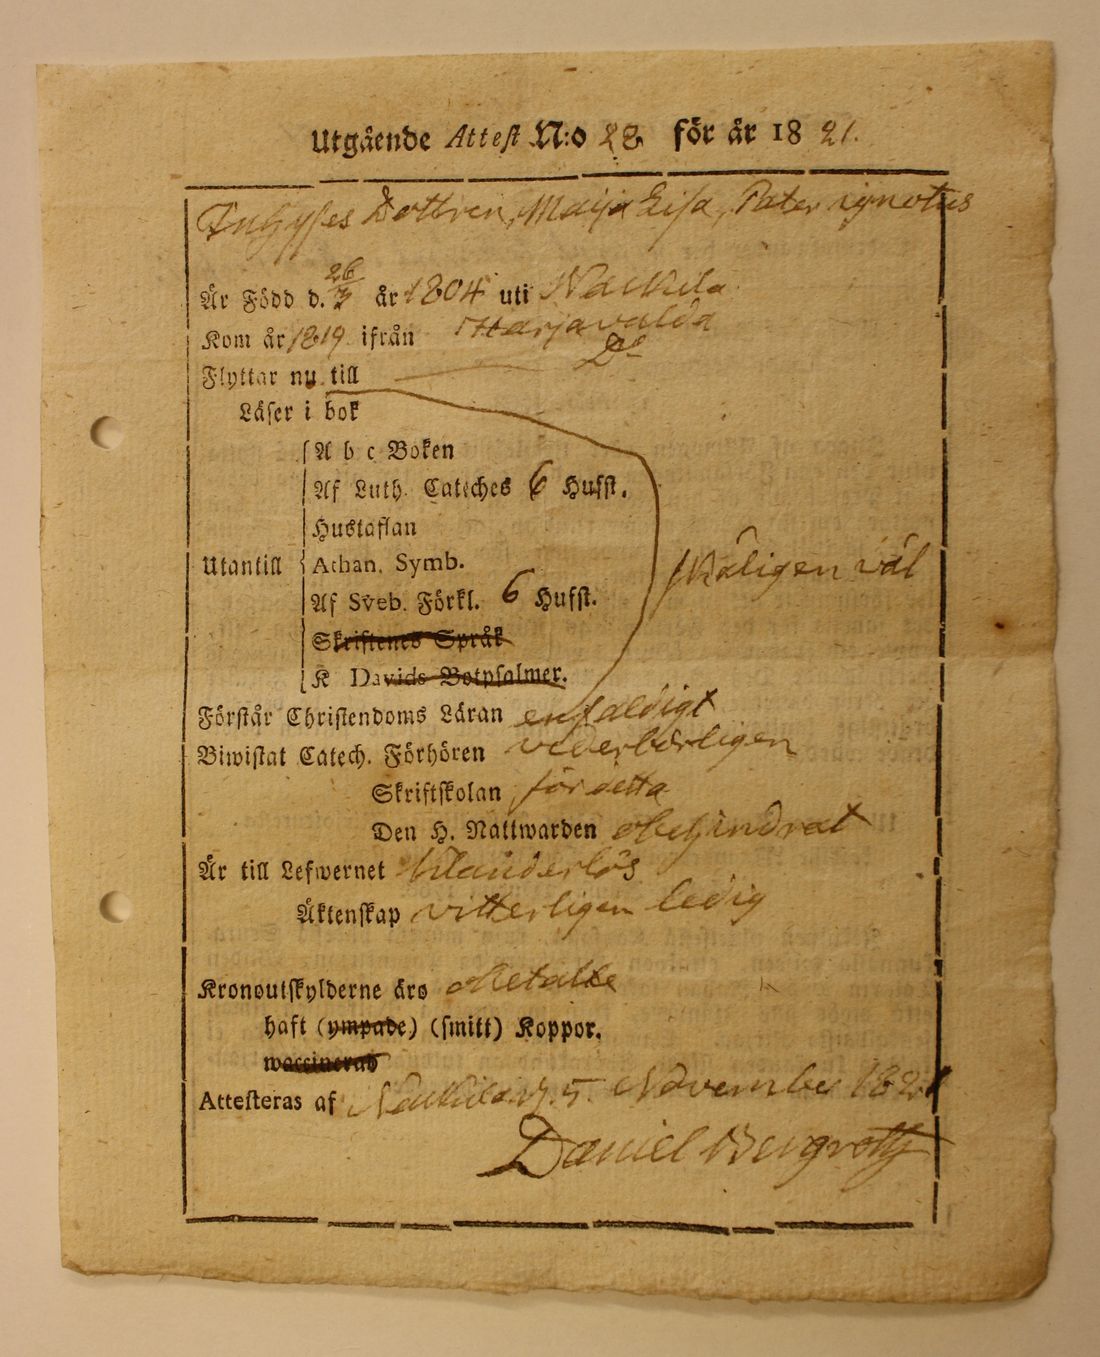 Utgående Attest N:o 28 för år 1821.
Inhyses Dottren, Maija Lisa, Pater ignotus
Är Född d. 26/3 år 1804 uti Nackila
Kom år 1819 ifrån Harjavalda
Flyttar nu till D:o
Läser i bok
A b c Boken
Af Luth. Cateches 6 Hufst.
Hustaflan
Utantill Athan. Symb. skäligen väl
Af Sveb. Förkl. 6 Hufst.
Skriftenes Språk
K Davids Botpsalmer.
Förstår Christendoms Läran enfaldigt
Biwistat Catech. Förhören vederbörligen
Skriftskolan för detta
Den H. Nattwarden obehindrat
Är till Lefwernet klanderlös
Äktenskap vitterligen ledig
Kronoutskylderne äro betalte
haft (ympade) (smitt) Koppor.
waccinerad
Attesteras af Nackila d. 5 November 1821
Daniel Bergroth